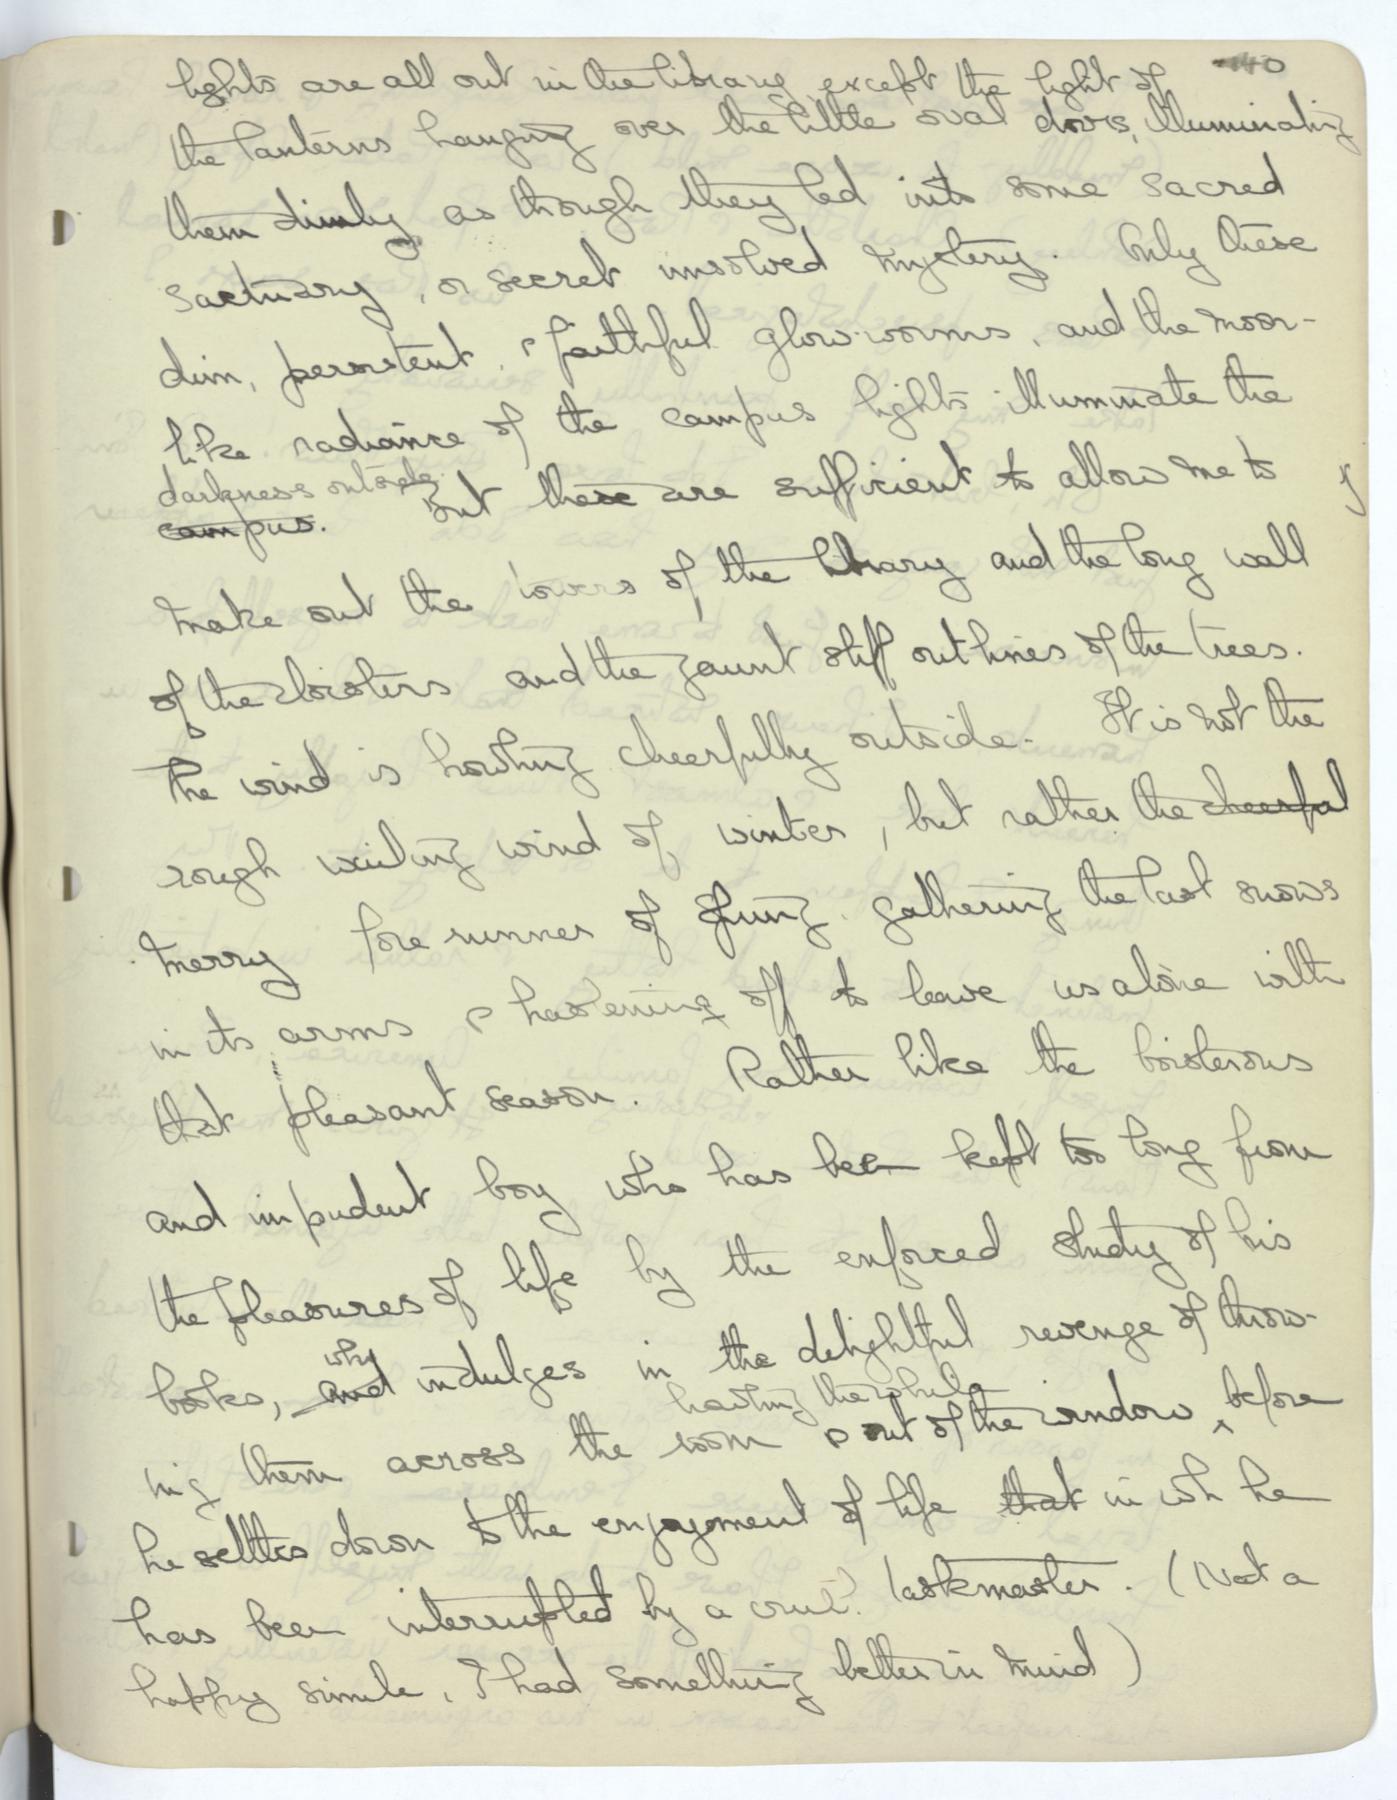 40
lights are all out in the library except the light of
the lanterns hanging over the little oval doors, illuminating
them dimly as though they led into some sacred
sactuary, or secret unsolved mystery. Only these
dim, persistent, & faithful glow-worms, and the moon-
like radiance of the campus lights illuminate the
darkness outside
campus. But these are sufficient to allow me to
make out the towers of the library and the long wall
of the cloisters and the gaunt stiff outlines of the trees.
The wind is howling cheerfully outside. It is not the
rough wailing wind of winter, but rather the cheerful
merry forerunner of spring gathering the last snows
in its arms & hastening off to leave us alone with
that pleasant season. Rather like the boisterous
and impudent boy who has been kept too long from
the pleasures of life by the enforced study of his
why
books, and indulges in the delightful revenge of throw-
ing them across the room & out of the window ^ before
he settles down to the enjoyment of life that in wh he
has been interrupted by a cruel taskmaster. (Not a
happy simile, I had something better in mind)